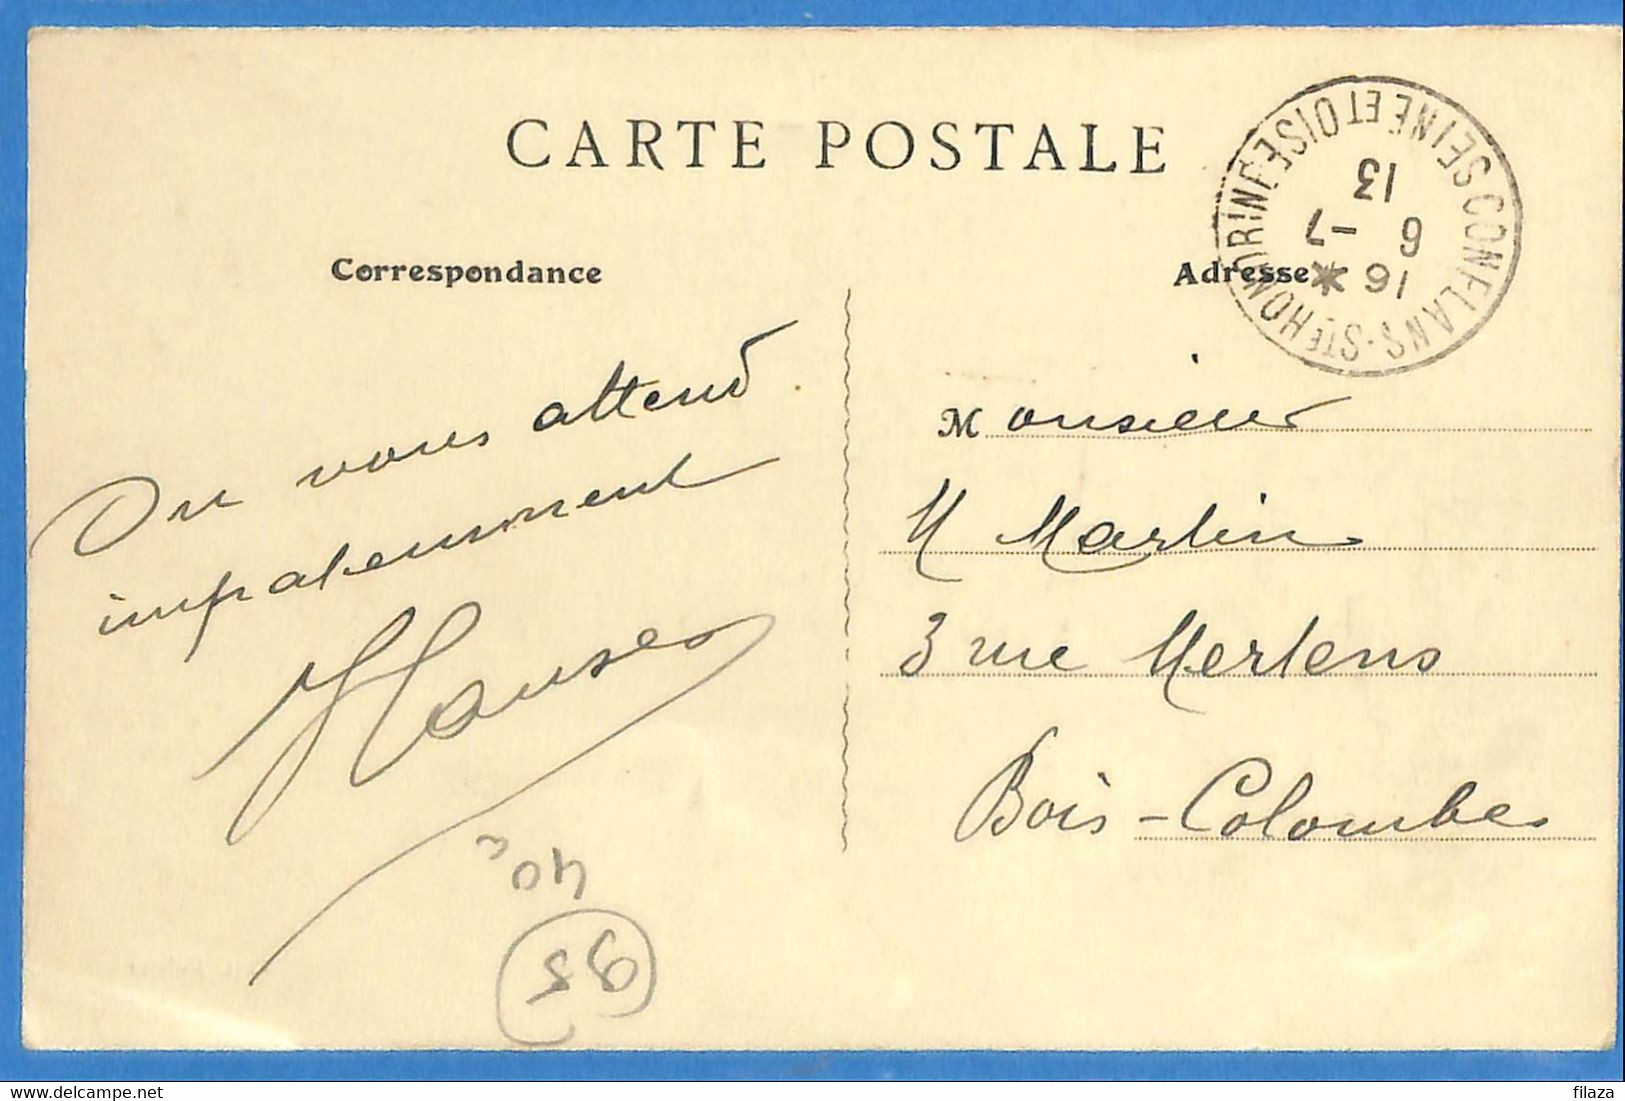 CARTE POSTALE
Correspondance
Adresse
CONFLANS-STE HONORINE SEINE ET OISE
16 *
6 -7
13
On vous attend
impatemment
Monsieur
M Martin
3 rue Mertens
Bois-Colombes
40
95
www.delcampe.net
filaza